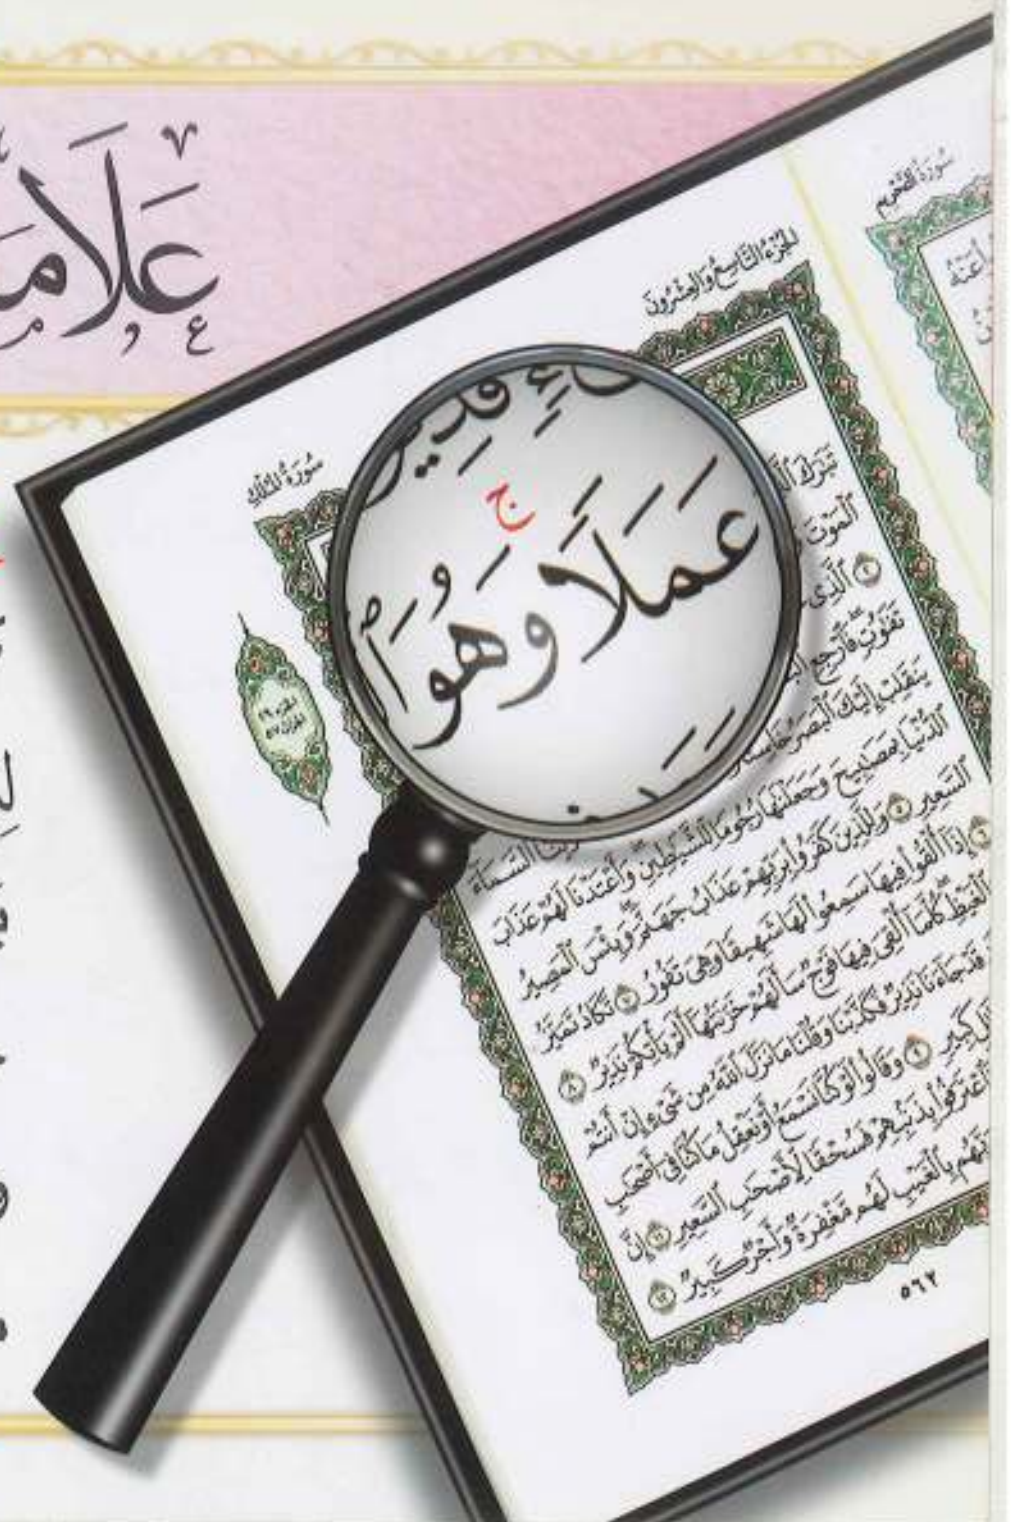 عَلَامَ
سُورَةُ التَّحْرِيمِ
الجُزْءُ التَّاسِعُ وَالعِشْرُونَ
سُورَةُ المُلْكِ
قَدِير
عَمَلًا ۚ وَهُوَ ٱ
تَبَٰرَكَ
ٱلْمَوْتَ
٢ ٱلَّذِى
تَفَٰوُتٍ فَٱرْجِعِ
يَنقَلِبْ إِلَيْكَ ٱلْبَصَرُ خَاسِئًا
ٱلسَّمَآءَ
ٱلدُّنْيَا بِمَصَٰبِيحَ وَجَعَلْنَٰهَا رُجُومًا لِّلشَّيَٰطِينِ وَأَعْتَدْنَا لَهُمْ عَذَابَ
ٱلسَّعِيرِ ٥ وَلِلَّذِينَ كَفَرُوا۟ بِرَبِّهِمْ عَذَابُ جَهَنَّمَ وَبِئْسَ ٱلْمَصِيرُ
٦ إِذَآ أُلْقُوا۟ فِيهَا سَمِعُوا۟ لَهَا شَهِيقًا وَهِىَ تَفُورُ ٧ تَكَادُ تَمَيَّزُ
ٱلْغَيْظِ كُلَّمَآ أُلْقِىَ فِيهَا فَوْجٌ سَأَلَهُمْ خَزَنَتُهَآ أَلَمْ يَأْتِكُمْ نَذِيرٌ ٨
قَدْ جَآءَنَا نَذِيرٌ فَكَذَّبْنَا وَقُلْنَا مَا نَزَّلَ ٱللَّهُ مِن شَىْءٍ إِنْ أَنتُمْ
كَبِيرٍ ٩ وَقَالُوا۟ لَوْ كُنَّا نَسْمَعُ أَوْ نَعْقِلُ مَا كُنَّا فِىٓ أَصْحَٰبِ
فَٱعْتَرَفُوا۟ بِذَنۢبِهِمْ فَسُحْقًا لِّأَصْحَٰبِ ٱلسَّعِيرِ ١١ إِنَّ
رَبَّهُم بِٱلْغَيْبِ لَهُم مَّغْفِرَةٌ وَأَجْرٌ كَبِيرٌ ١٢
٥٦٢